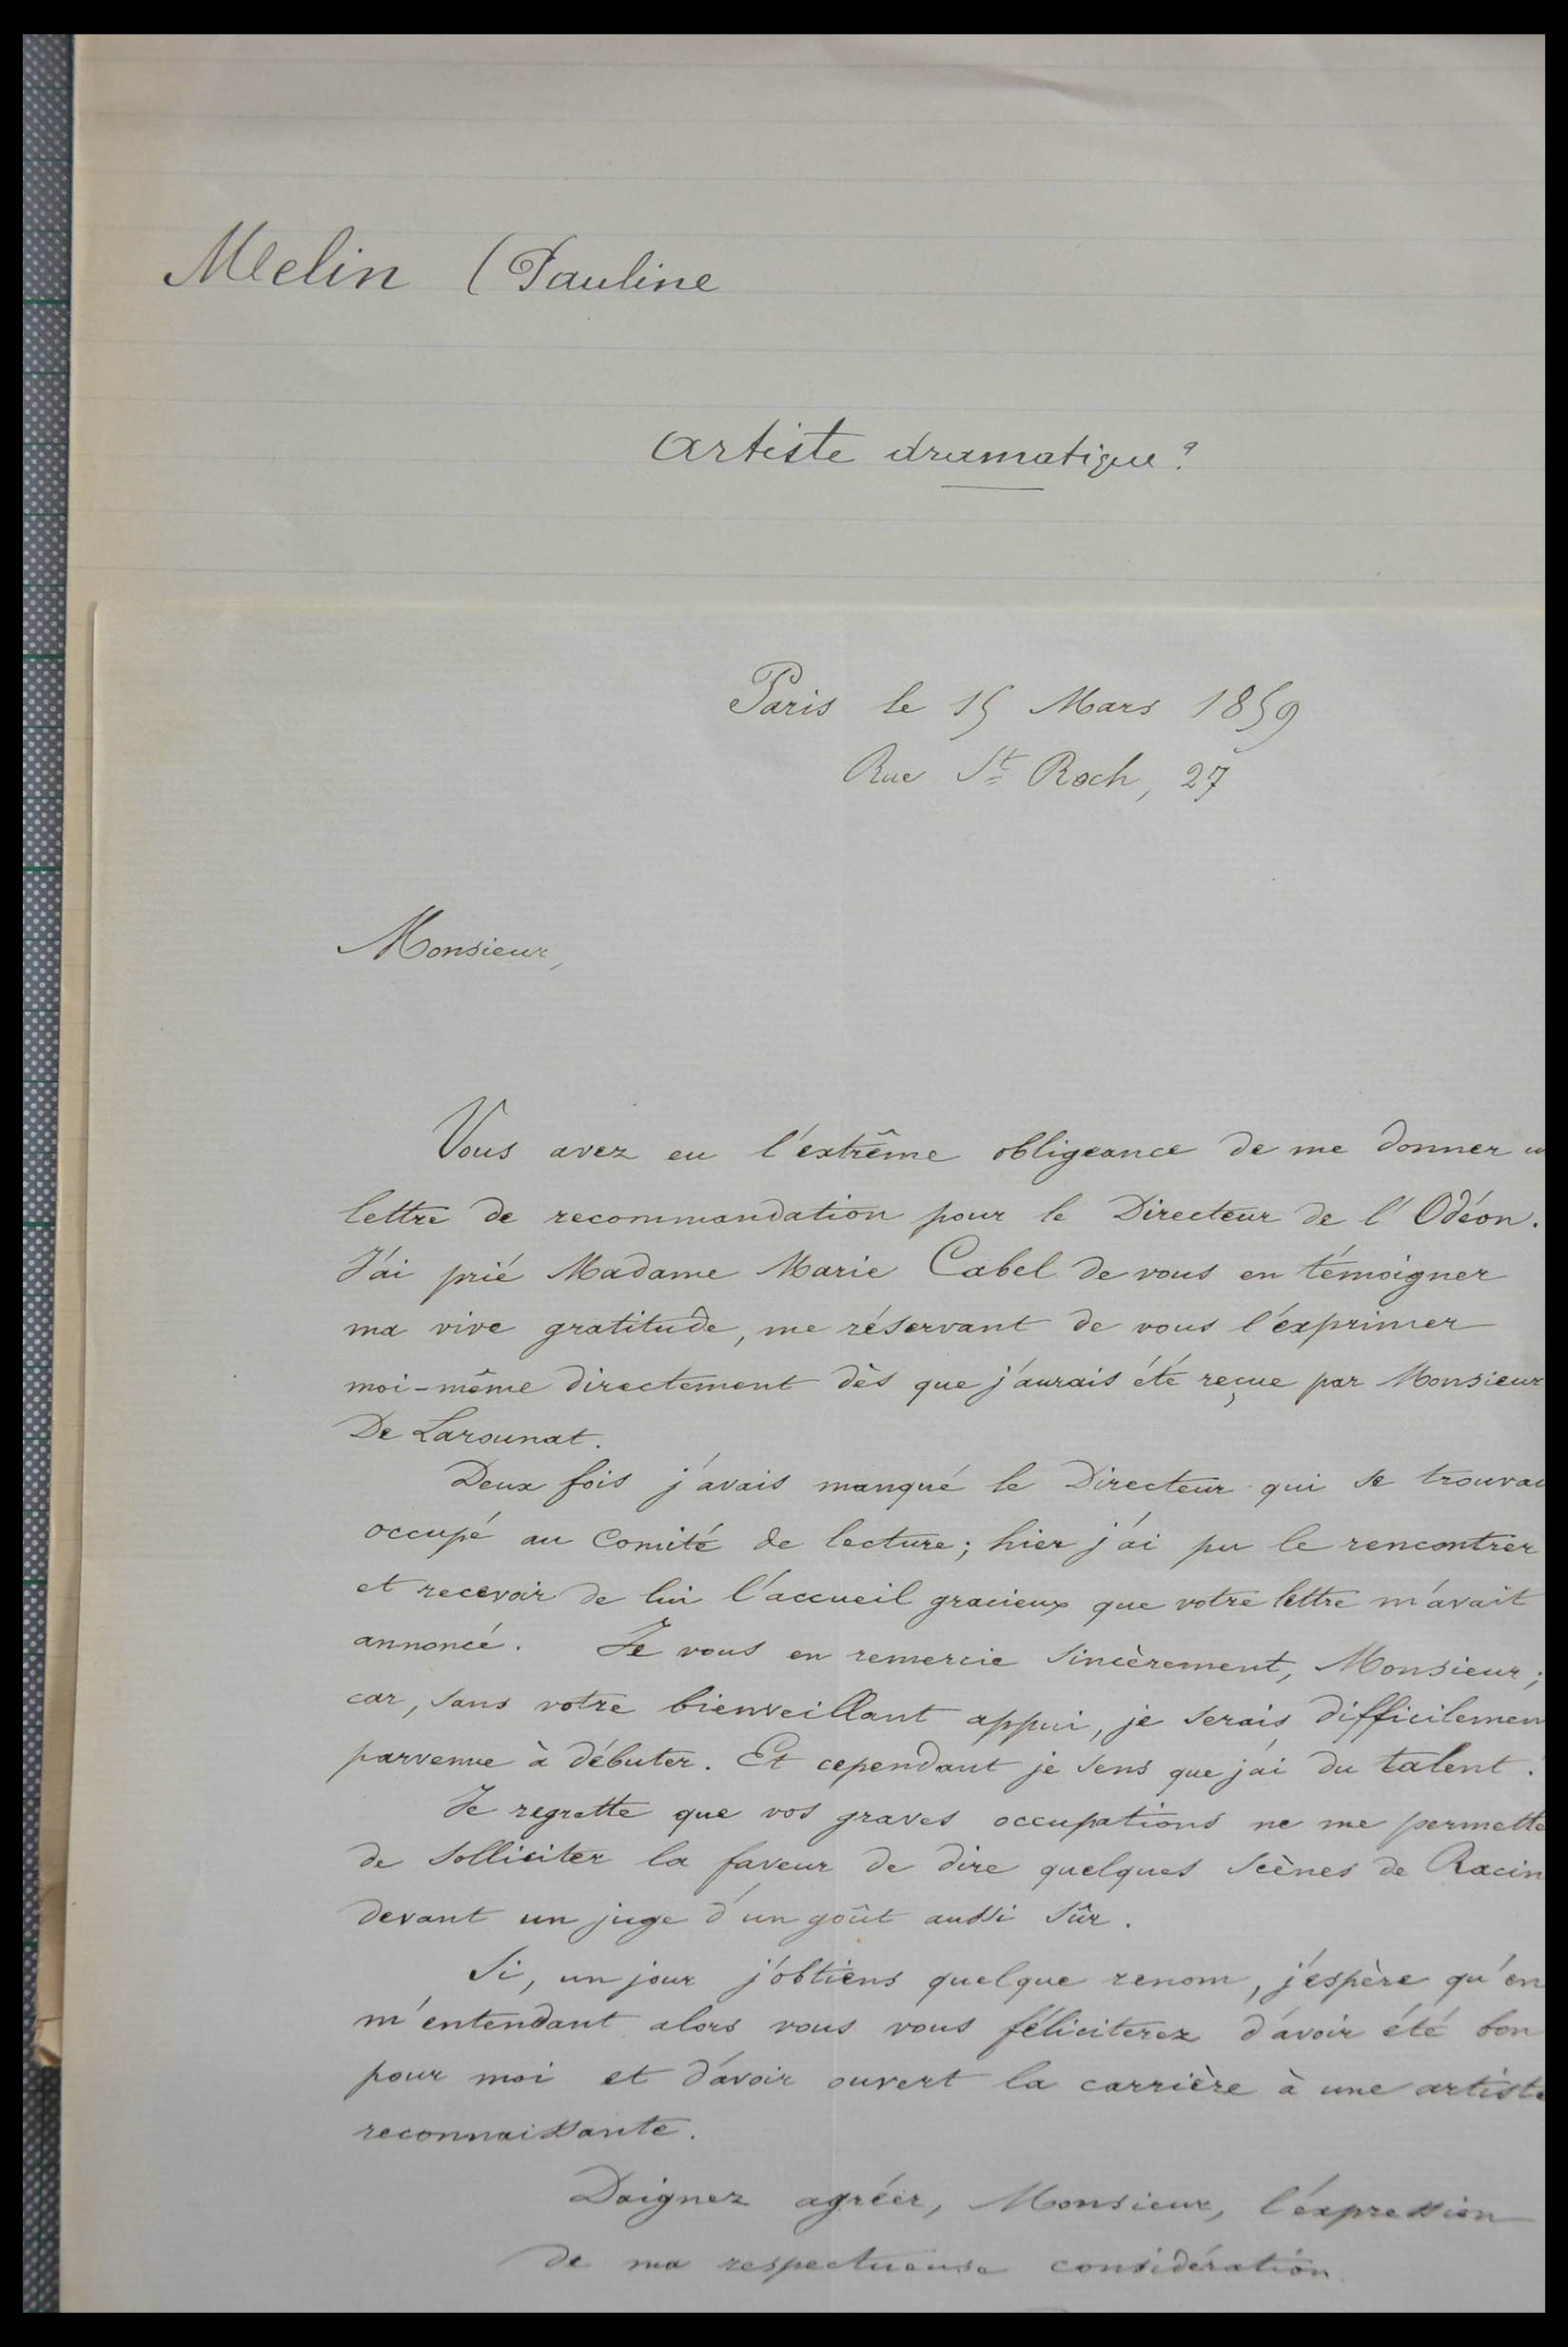 Melin (Pauline
Artiste dramatique ?
Paris le 15 Mars 1859
Rue St Roch, 27
Monsieur,
Vous avez eu l'extrême obligeance de me donner
lettre de recommandation pour le Directeur de l'Odéon.
J'ai prié Madame Marie Cabel de vous en témoigner
ma vive gratitude, me réservant de vous l'exprimer
moi-même directement dès que j'aurais été reçue par Monsieur
De Larounat.
Deux fois j'avais manqué le Directeur qui se trouvai
occupé au Comité de lecture; hier j'ai pu le rencontrer
et recevoir de lui l'accueil gracieux que votre lettre m'avait
annoncé. Je vous en remercie sincèrement, Monsieur;
car, sans votre bienveillant appui, je serais difficilemen
parvenue à débuter. Et cependant je sens que j'ai du talent.
Je regrette que vos graves occupations ne me permette
de solliciter la faveur de dire quelques scènes de Racin
devant un juge d'un goût aussi sûr.
Si, un jour j'obtiens quelque renom, j'espère qu'en
m'entendant alors vous vous féliciterez d'avoir été bon
pour moi et d'avoir ouvert la carrière à une artiste
reconnaissante.
Daignez agréer, Monsieur, l'expression
de ma respectueuse considération.